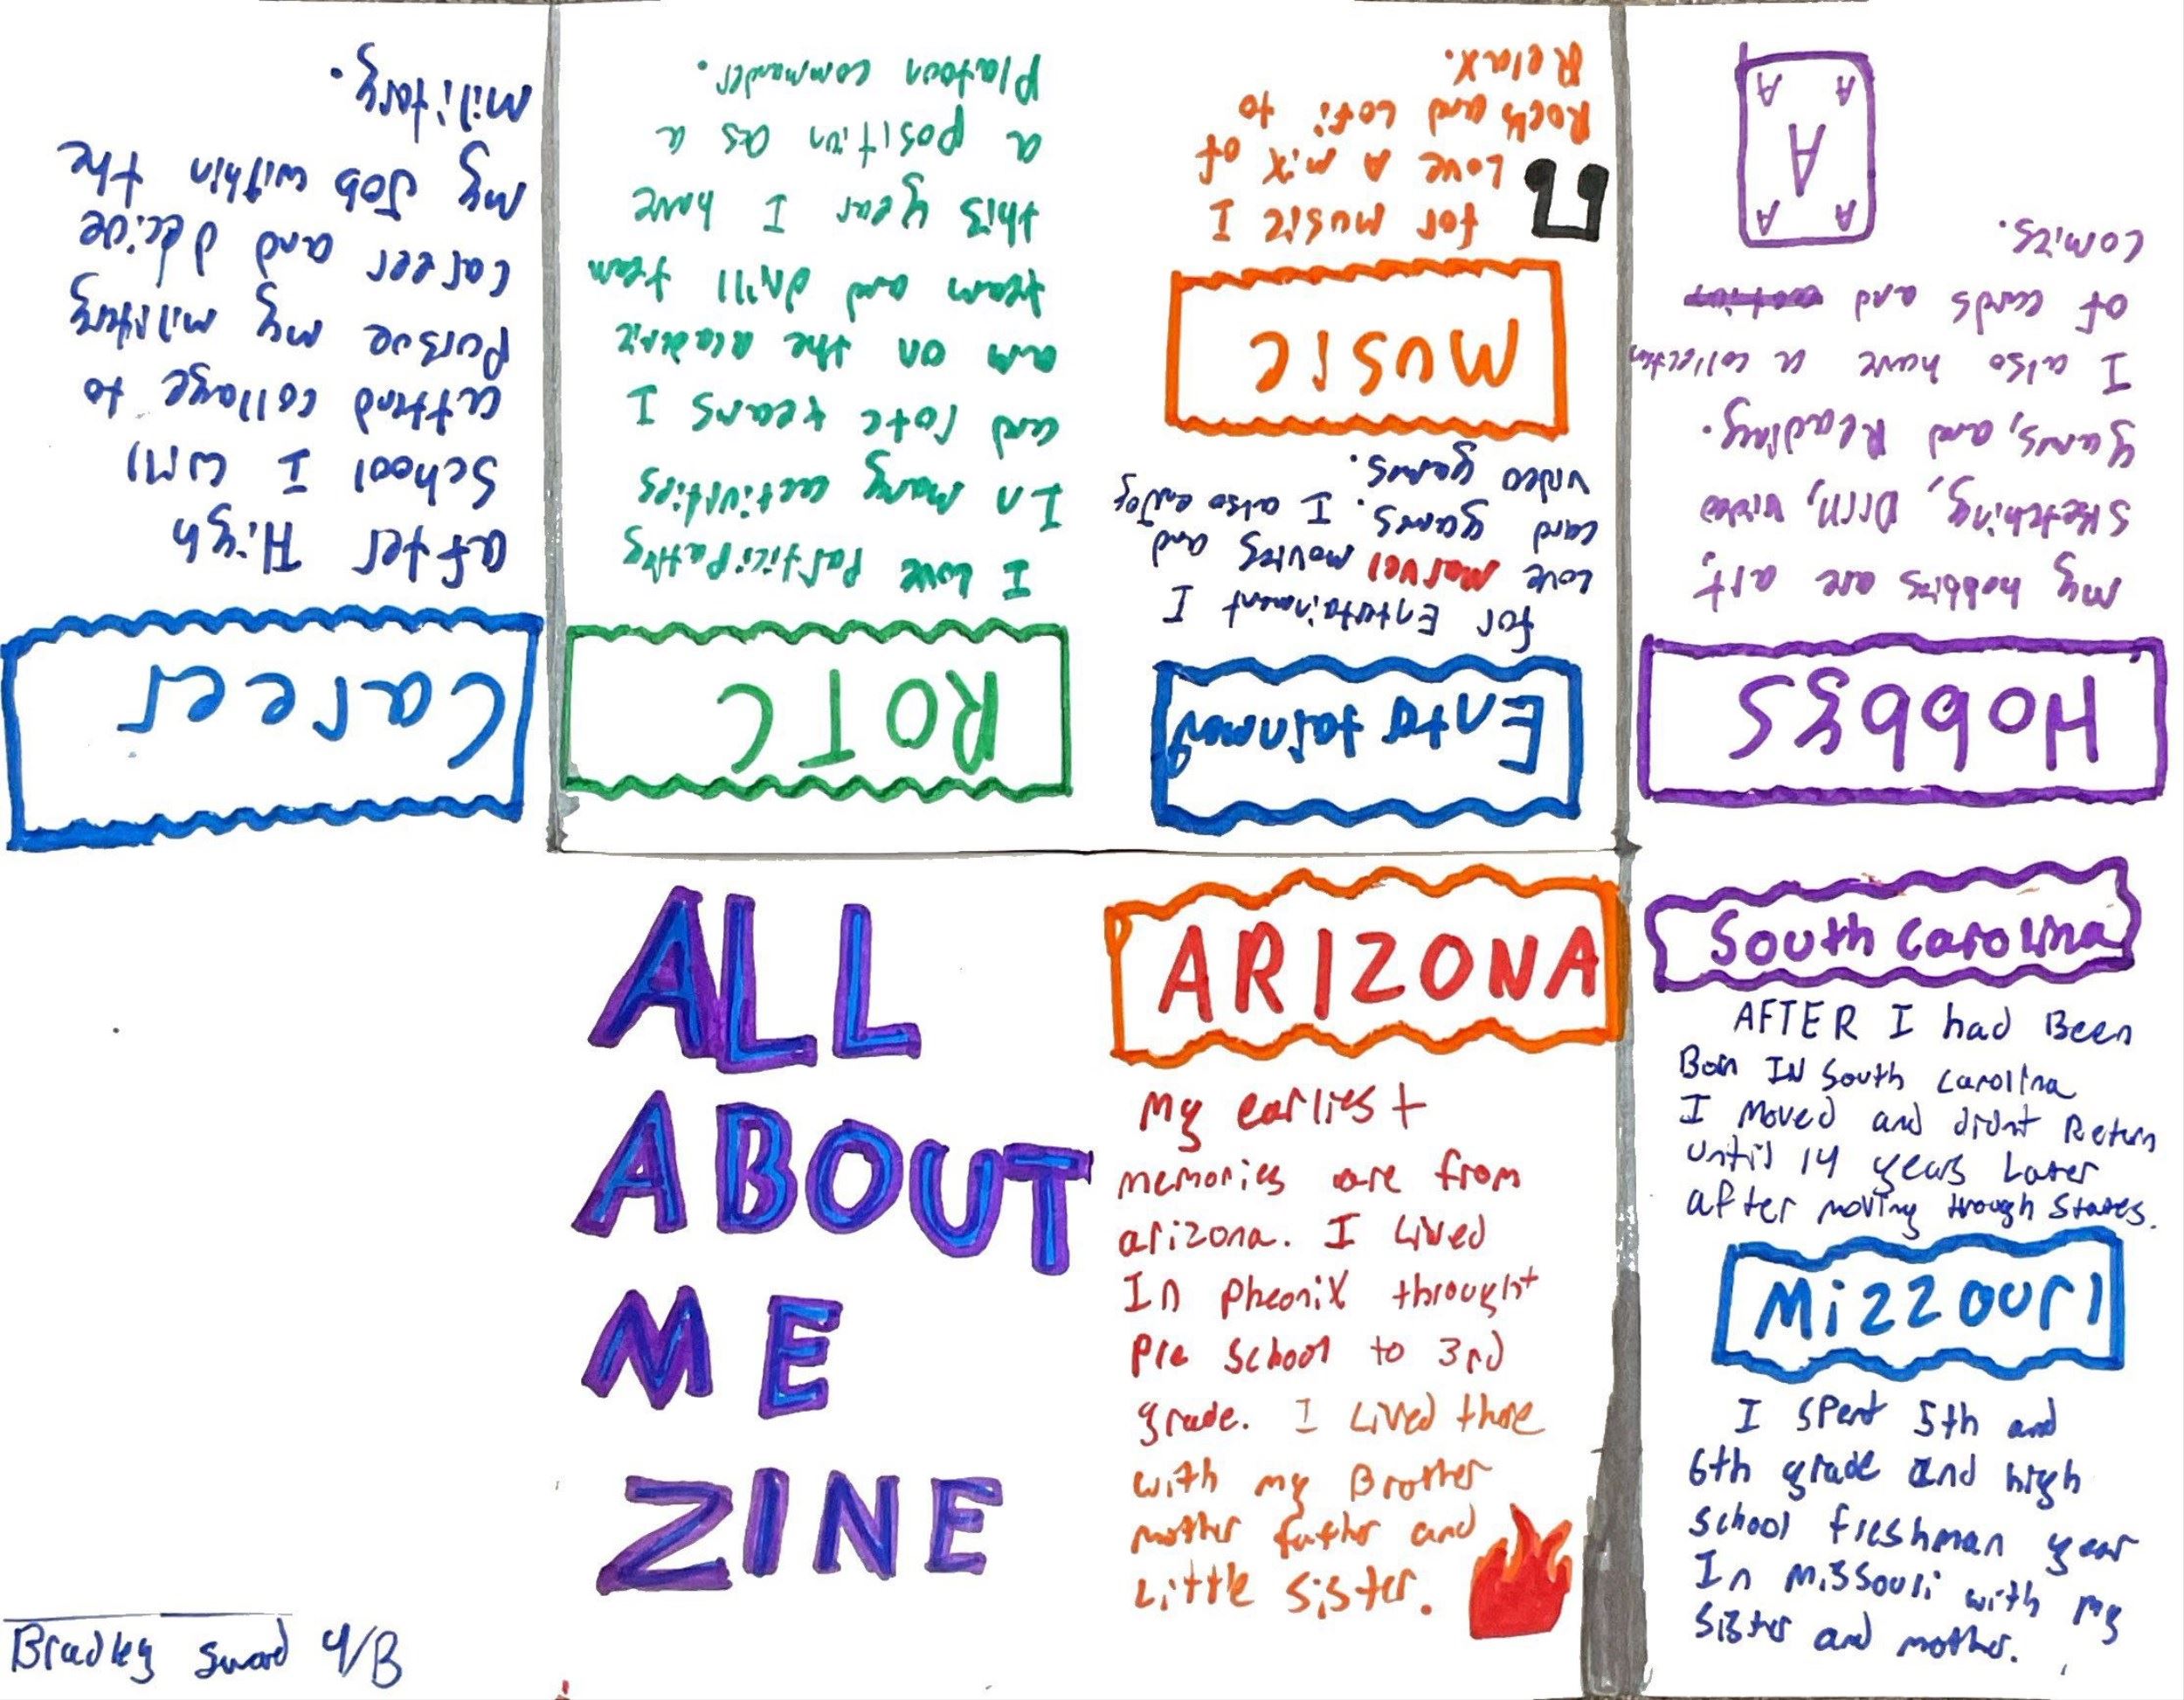 ALL
ABOUT
ME
ZINE
ARIZONA
My earliest
memories are from
arizona. I Lived
In Pheonix throught
Pre School to 3rd
grade. I Lived there
with my Brother
mother father and
Little Sister.
South Carolina
AFTER I had Been
Born IN South Carolina
I Moved and didnt Return
until 14 years Later
after moving through States.
Mizzouri
I spent 5th and
6th grade and high
school freshman year
In Missouri with my
sister and mother.
Hobbys
my hobbies are art,
sketching, Drill, video
games, and Reading.
I also have a collection
of cards and
comics.
A A
A
A A
Entertainment
for Entertainment I
Love Marvel movies and
card games. I also enjoy
video games.
MUSIC
for music I
Love A mix of
Rock and Lofi to
Relax.
ROTC
I Love Participating
In many activities
and rotc teams I
am on the academic
team and drill team
this year I have
a position as a
Platoon commander.
Career
after High
School I will
attend collage to
Pursue my military
career and decide
my Job within the
military.
Bradley Sward 4/B